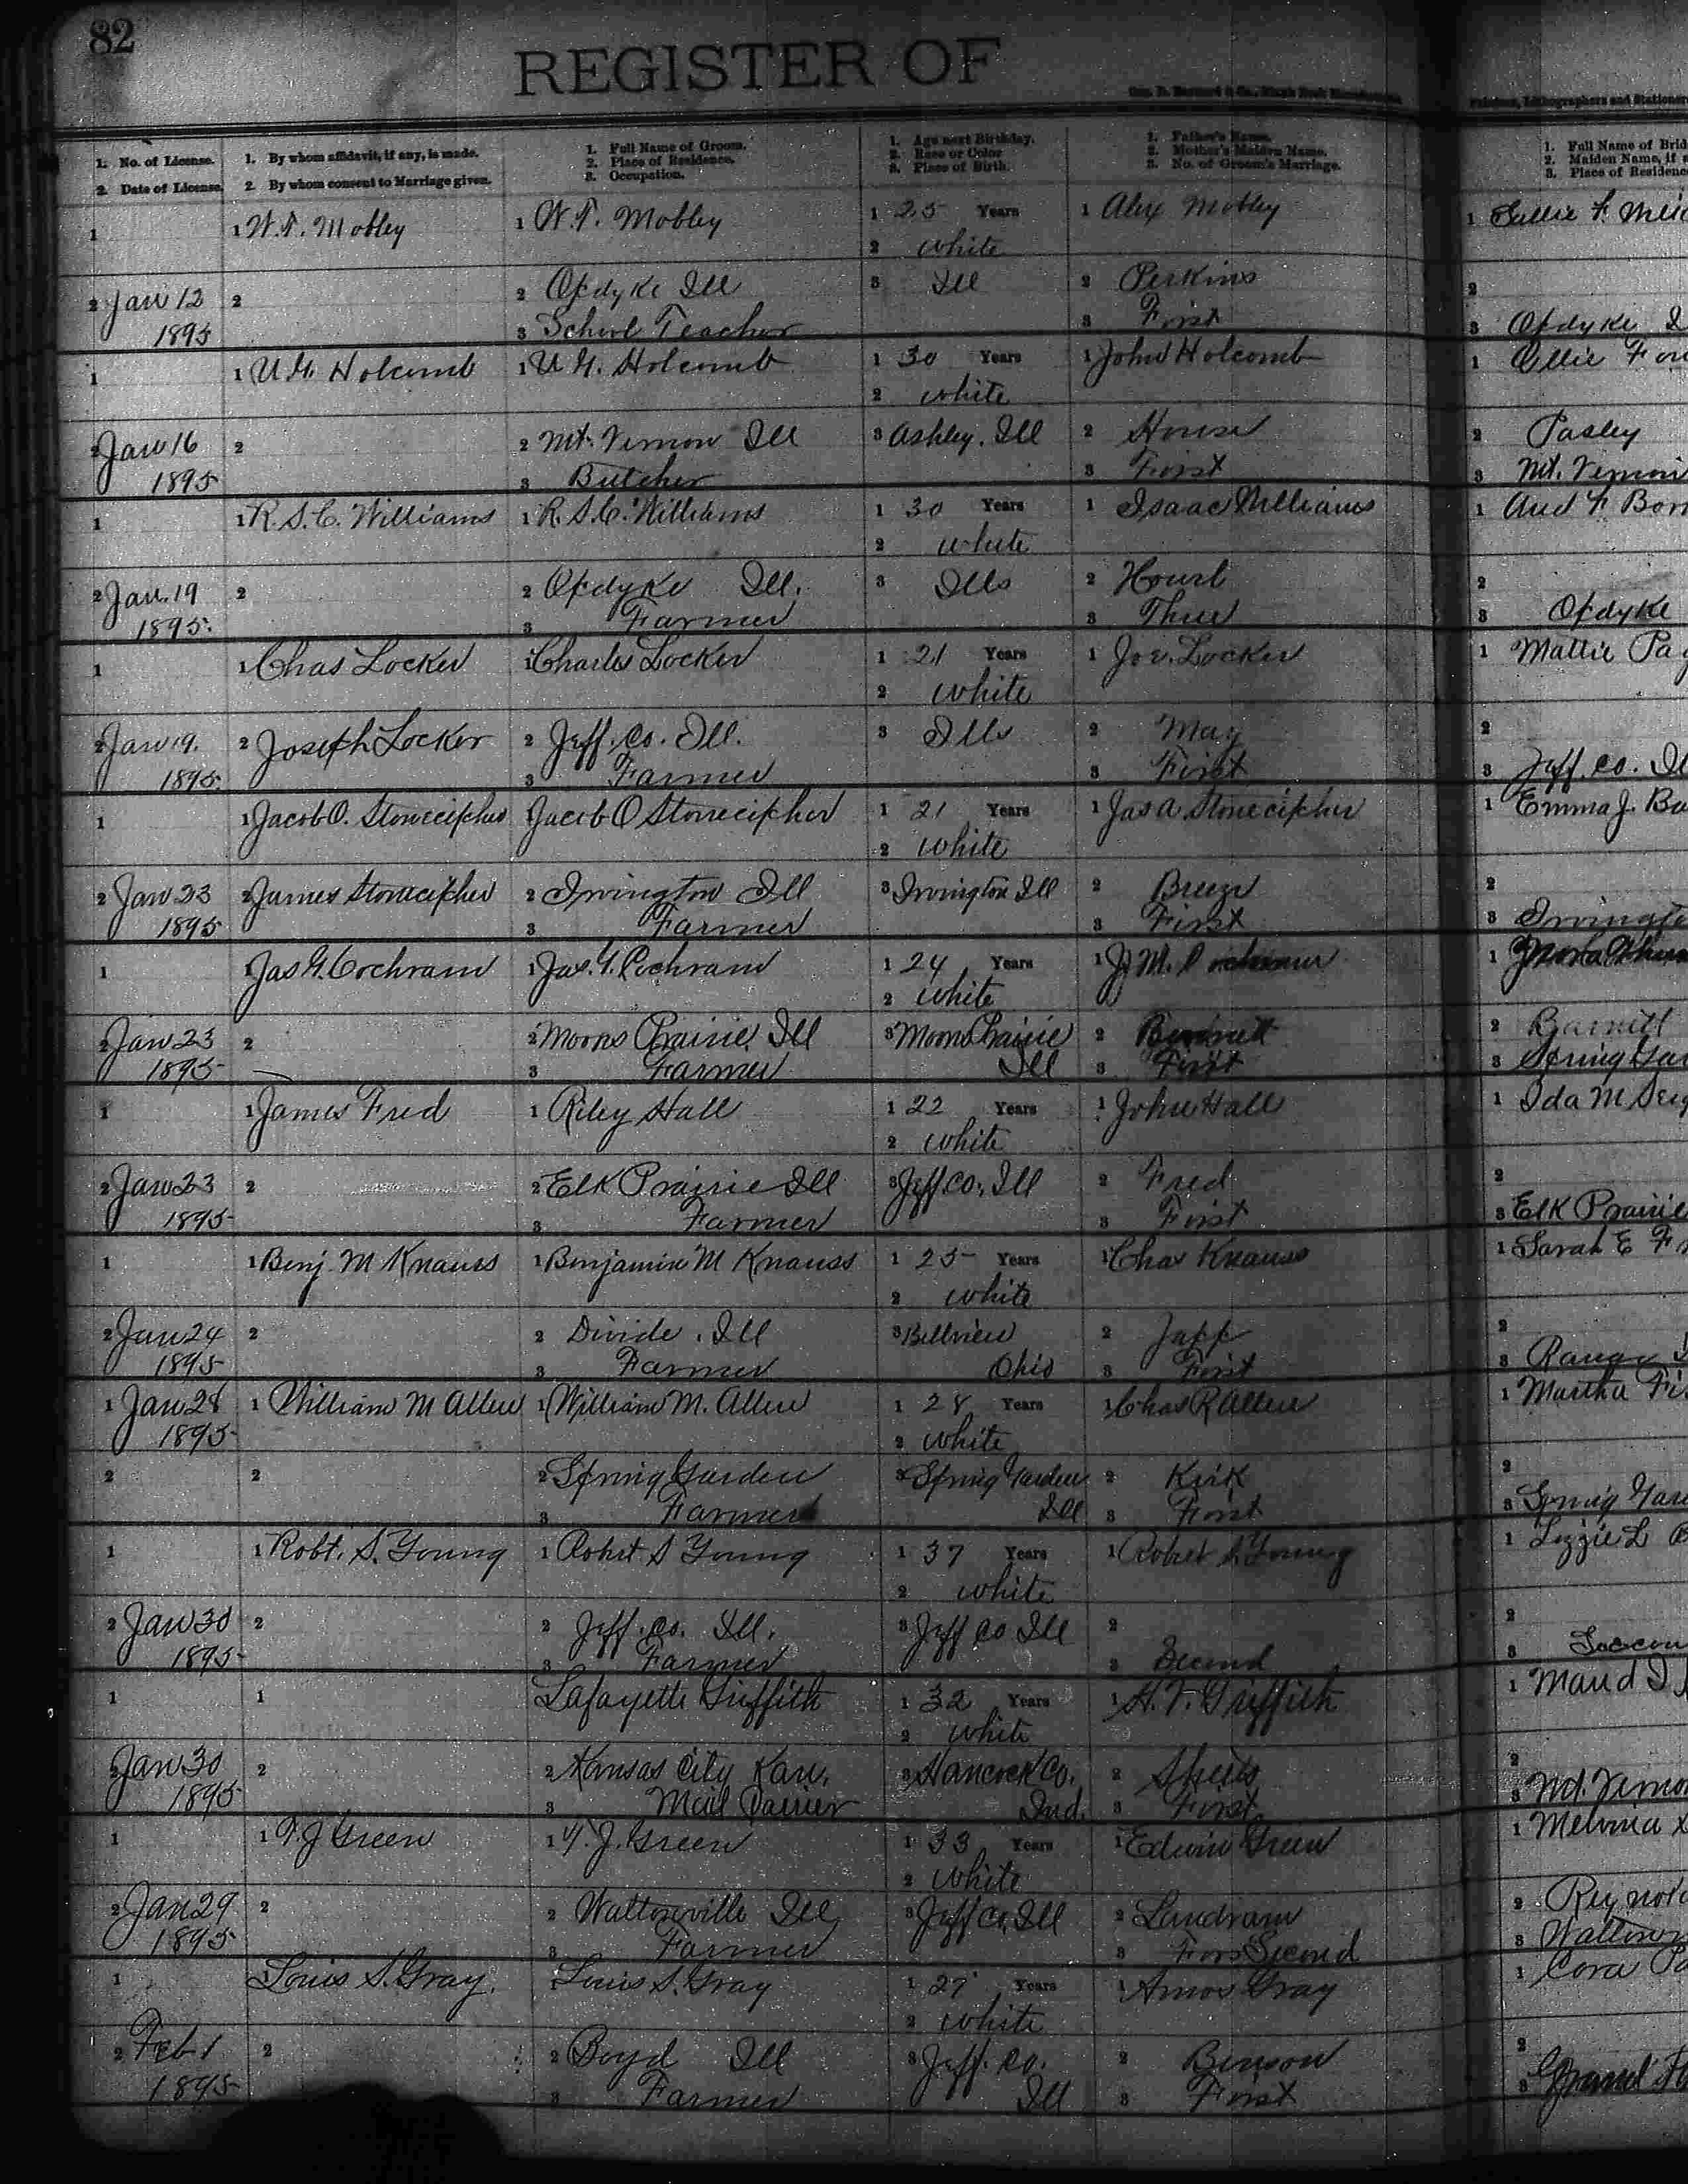 82
REGISTER OF
1. No. of License.
2. Date of License.
1. By whom affidavit, if any, is made.
2. By whom consent to Marriage given.
1. Full Name of Groom.
2. Place of Residence.
3. Occupation.
1. Age next Birthday.
2. Race or Color
3. Place of Birth.
1. Father's Name.
2. Mother's Maiden Name.
3. No. of Groom's Marriage.
1. Full Name of Brid
2. Maiden Name, if
3. Place of Residence
1 1 W. T. Mobley 1 W. T. Mobley 1 25 Years 1 Alex Mobley 1 Sallie F.
2 white
2 Jan 12 2 2 Opdyke Ill 3 Ill 2 Perkins 2
1895 3 School Teacher 3 First 3 Opdyke
1 1 U G. Holcomb 1 U G. Holcomb 1 30 Years 1 John Holcomb 1 Ollie
2 white
2 Jan 16 2 2 Mt. Vernon Ill 3 Ashley. Ill 2 House 2 Pasley
1895 3 Butcher 3 First 3 Mt. Vernon
1 1 R. S. C. Williams 1 R. S. C. Williams 1 30 Years 1 Isaac Williams 1
2 white
2 Jan. 19 2 2 Opdyke Ill. 3 Ills 2 2
1895. 3 Farmer 3 Three 3 Opdyke
1 1 Chas Locker 1 Charles Locker 1 21 Years 1 Joe. Locker 1 Mattie Pa
2 white
2 Jan 19. 2 Joseph Locker 2 Jeff. Co. Ill. 3 Ills 2 May 2
1895. 3 Farmer 3 First 3 Jeff. Co. Il
1 1 Jacob O. Stonecipher 1 Jacob O Stonecipher 1 21 Years 1 Jas A. Stonecipher 1 Emma J. Ba
2 white
2 Jan 23 2 James Stonecipher 2 Irvington Ill 3 Irvington Ill 2 Breeze 2
1895 3 Farmer 3 First 3 Irvingto
1 1 Jas. G. Cochran 1 Jas. G. Cochran 1 24 Years 1 J. M. 1
2 white
2 Jan 23 2 2 Moores Prairie, Ill 3 Moores Prairie 2 2 Barnett
1895 3 Farmer Ill 3 First 3 Spring Gar
1 1 James Fred 1 Riley Hall 1 22 Years 1 John Hall 1 Ida M
2 white
2 Jan 23 2 2 Elk Prairie Ill 3 Jeff Co., Ill 2 Fred 2
1895 3 Farmer 3 First 3 Elk Prairie
1 1 Benj. M Knauss 1 Benjamin M Knauss 1 25 Years 1 Chas Knauss 1 Sarah E
2 white
2 Jan 24 2 2 Divide. Ill 3 Bellview 2 Japp 2
1895 3 Farmer Ohio 3 First 3
1 Jan 28 1 William M Allen 1 William M. Allen 1 28 Years 1 Chas R Allen 1 Martha
1895 2 white
2 2 2 Spring Garden 3 Spring Garden 2 Kirk 2
3 Farmer Ill 3 First 3 Spring Gar
1 1 Robt. S. Young 1 Robert S Young 1 37 Years 1 Robert S. Young 1 Lizzie L
2 white
2 Jan 30 2 2 Jeff. Co. Ill. 3 Jeff Co Ill 2 2
1895 3 Farmer 3 Second 3
1 1 Lafayette Griffith 1 32 Years 1 H. T. Griffith 1 Maud
2 white
2 Jan 30 2 2 Kansas City Kan. 3 Hancock Co. 2 2
1895 3 Mail Carrier Ind. 3 First 3 Mt. Verno
1 1 T. J Green 1 T. J. Green 1 33 Years 1 Edwin Green 1 Melvina
2 white
2 Jan 29 2 2 Waltonville Ill 3 Jeff Co, Ill 2 Landram 2 Reynol
1895 3 Farmer 3 Second 3 Walton
1 Louis S. Gray. 1 Louis S. Gray 1 27 Years 1 Amos Gray 1 Cora Pa
2 white
2 Feb 1 2 2 Boyd Ill 3 Jeff. Co. 2 Benson 2
1895 3 Farmer Ill 3 First 3